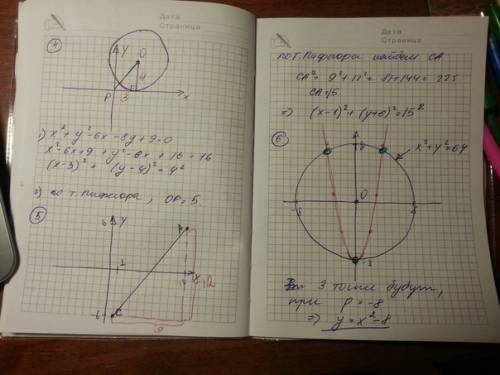 Дата
Страница
4
y
O
4
P
3
x
1) x²+y²-6x-8y+9=0
x²-6x+9+y²-8x+16=16
(x-3)²+(y-4)²=4²
2) по т. Пифагора, OP=5
5
6
y
A
1
x
12
-6
C
9
Дата
Страница
по т. Пифагора найдем CA
CA²= 9²+12²= 81+144= 225
CA=15
=> (x-1)²+(y+6)²=15²
6
8
x²+y²=64
O
3 точки будут,
при p=-8
=> y=x²-8